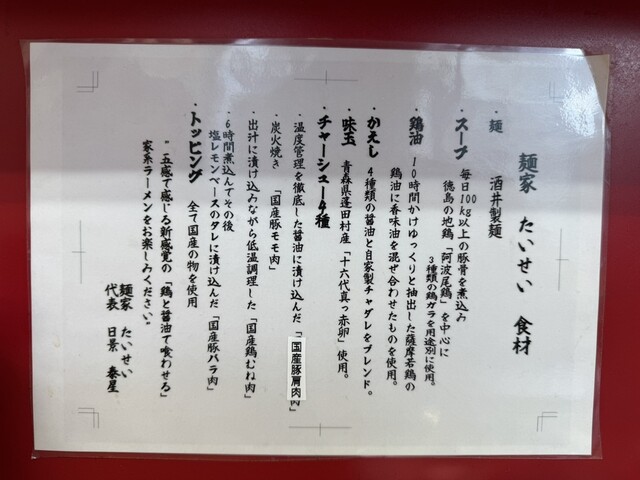 麺家 たいせい 食材
・麺 酒井製麺
・スープ 毎日100kg以上の豚骨を煮込み
徳島の地鶏「阿波尾鶏」を中心に
3種類の鶏ガラを用途別に使用。
・鶏油 10時間かけゆっくりと抽出した薩摩若鶏の
鶏油に香味油を混ぜ合わせたものを使用。
・かえし 4種類の醤油と自家製チャダレをブレンド。
・味玉 青森県蓬田村産「十六代真っ赤卵」使用。
・チャーシュー4種
・温度管理を徹底した醤油に漬け込んだ「国産豚肩肉」
・炭火焼き 「国産豚モモ肉」
・出汁に漬け込みながら低温調理した「国産鶏むね肉」
・6時間煮込んでその後
塩レモンベースのタレに漬け込んだ「国産豚バラ肉」
・トッピング 全て国産の物を使用
"五感で感じる新感覚の「鶏と醤油で喰わせる」
家系ラーメンをお楽しみください"
麺家 たいせい
代表 日景 泰星